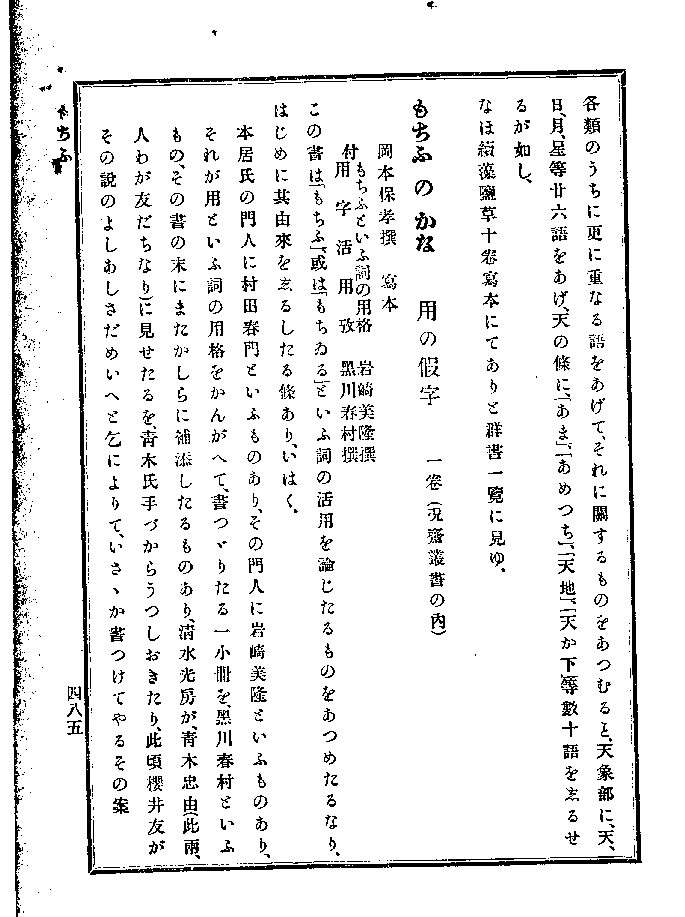 各類のうちに更に重なる語をあげて、それに關するものをあつむると、天象部に、天、
日、月、星等廿六語をあげ、天の條に、「あま」、「あめつち」、「天地」、「天か下」等數十語を志るせ
るが如し、
なほ續藻鹽草十卷寫本にてありと群書一覽に見ゆ、
もちふのかな 用の假字 一卷(况齋叢書の內)
岡本保孝撰 寫本
付 もちふといふ詞の用格 岩崎美隆撰
用字活用攷 黑川春村撰
この書は「もちふ」、或は「もちゐる」といふ詞の活用を論じたるものをあつめたるなり、
はじめに其由來を志るしたる條あり、いはく、
本居氏の門人に村田春門といふものあり、その門人に岩崎美隆といふものあり、
それが用といふ詞の用格をかんがへて、書つゞりたる一小冊を、黑川春村といふ
もの、その書の末にまたかしらに補添したるものあり、淸水光房が、靑木忠由(此兩
人わが友だちなり)に見せたるを、靑木氏手づからうつしおきたり、此頃櫻井友が
その說のよしあしさだめいへと乞によりて、いさゝか書つけてやるその案
もちふ
四八五